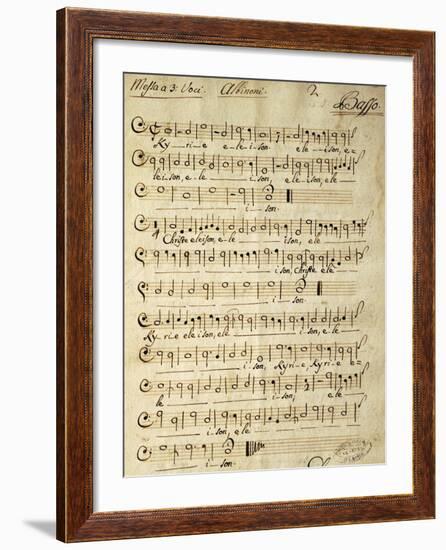 Messa a 3 Voci. Albinoni. 2
Basso.
Ky_ri_e e_le_i_son. ele_ison, e=
leison, e_le i_son, eleison, ele
i_son.
Christe eleison, e_le ison, ele
i_son, Christe ele
i_son.
Ky_ri_e eleison, ele i_son, e_le
i_son, Kyri_e, Kyri_e e=
le i_son, ele
i_son, ele
i_son.